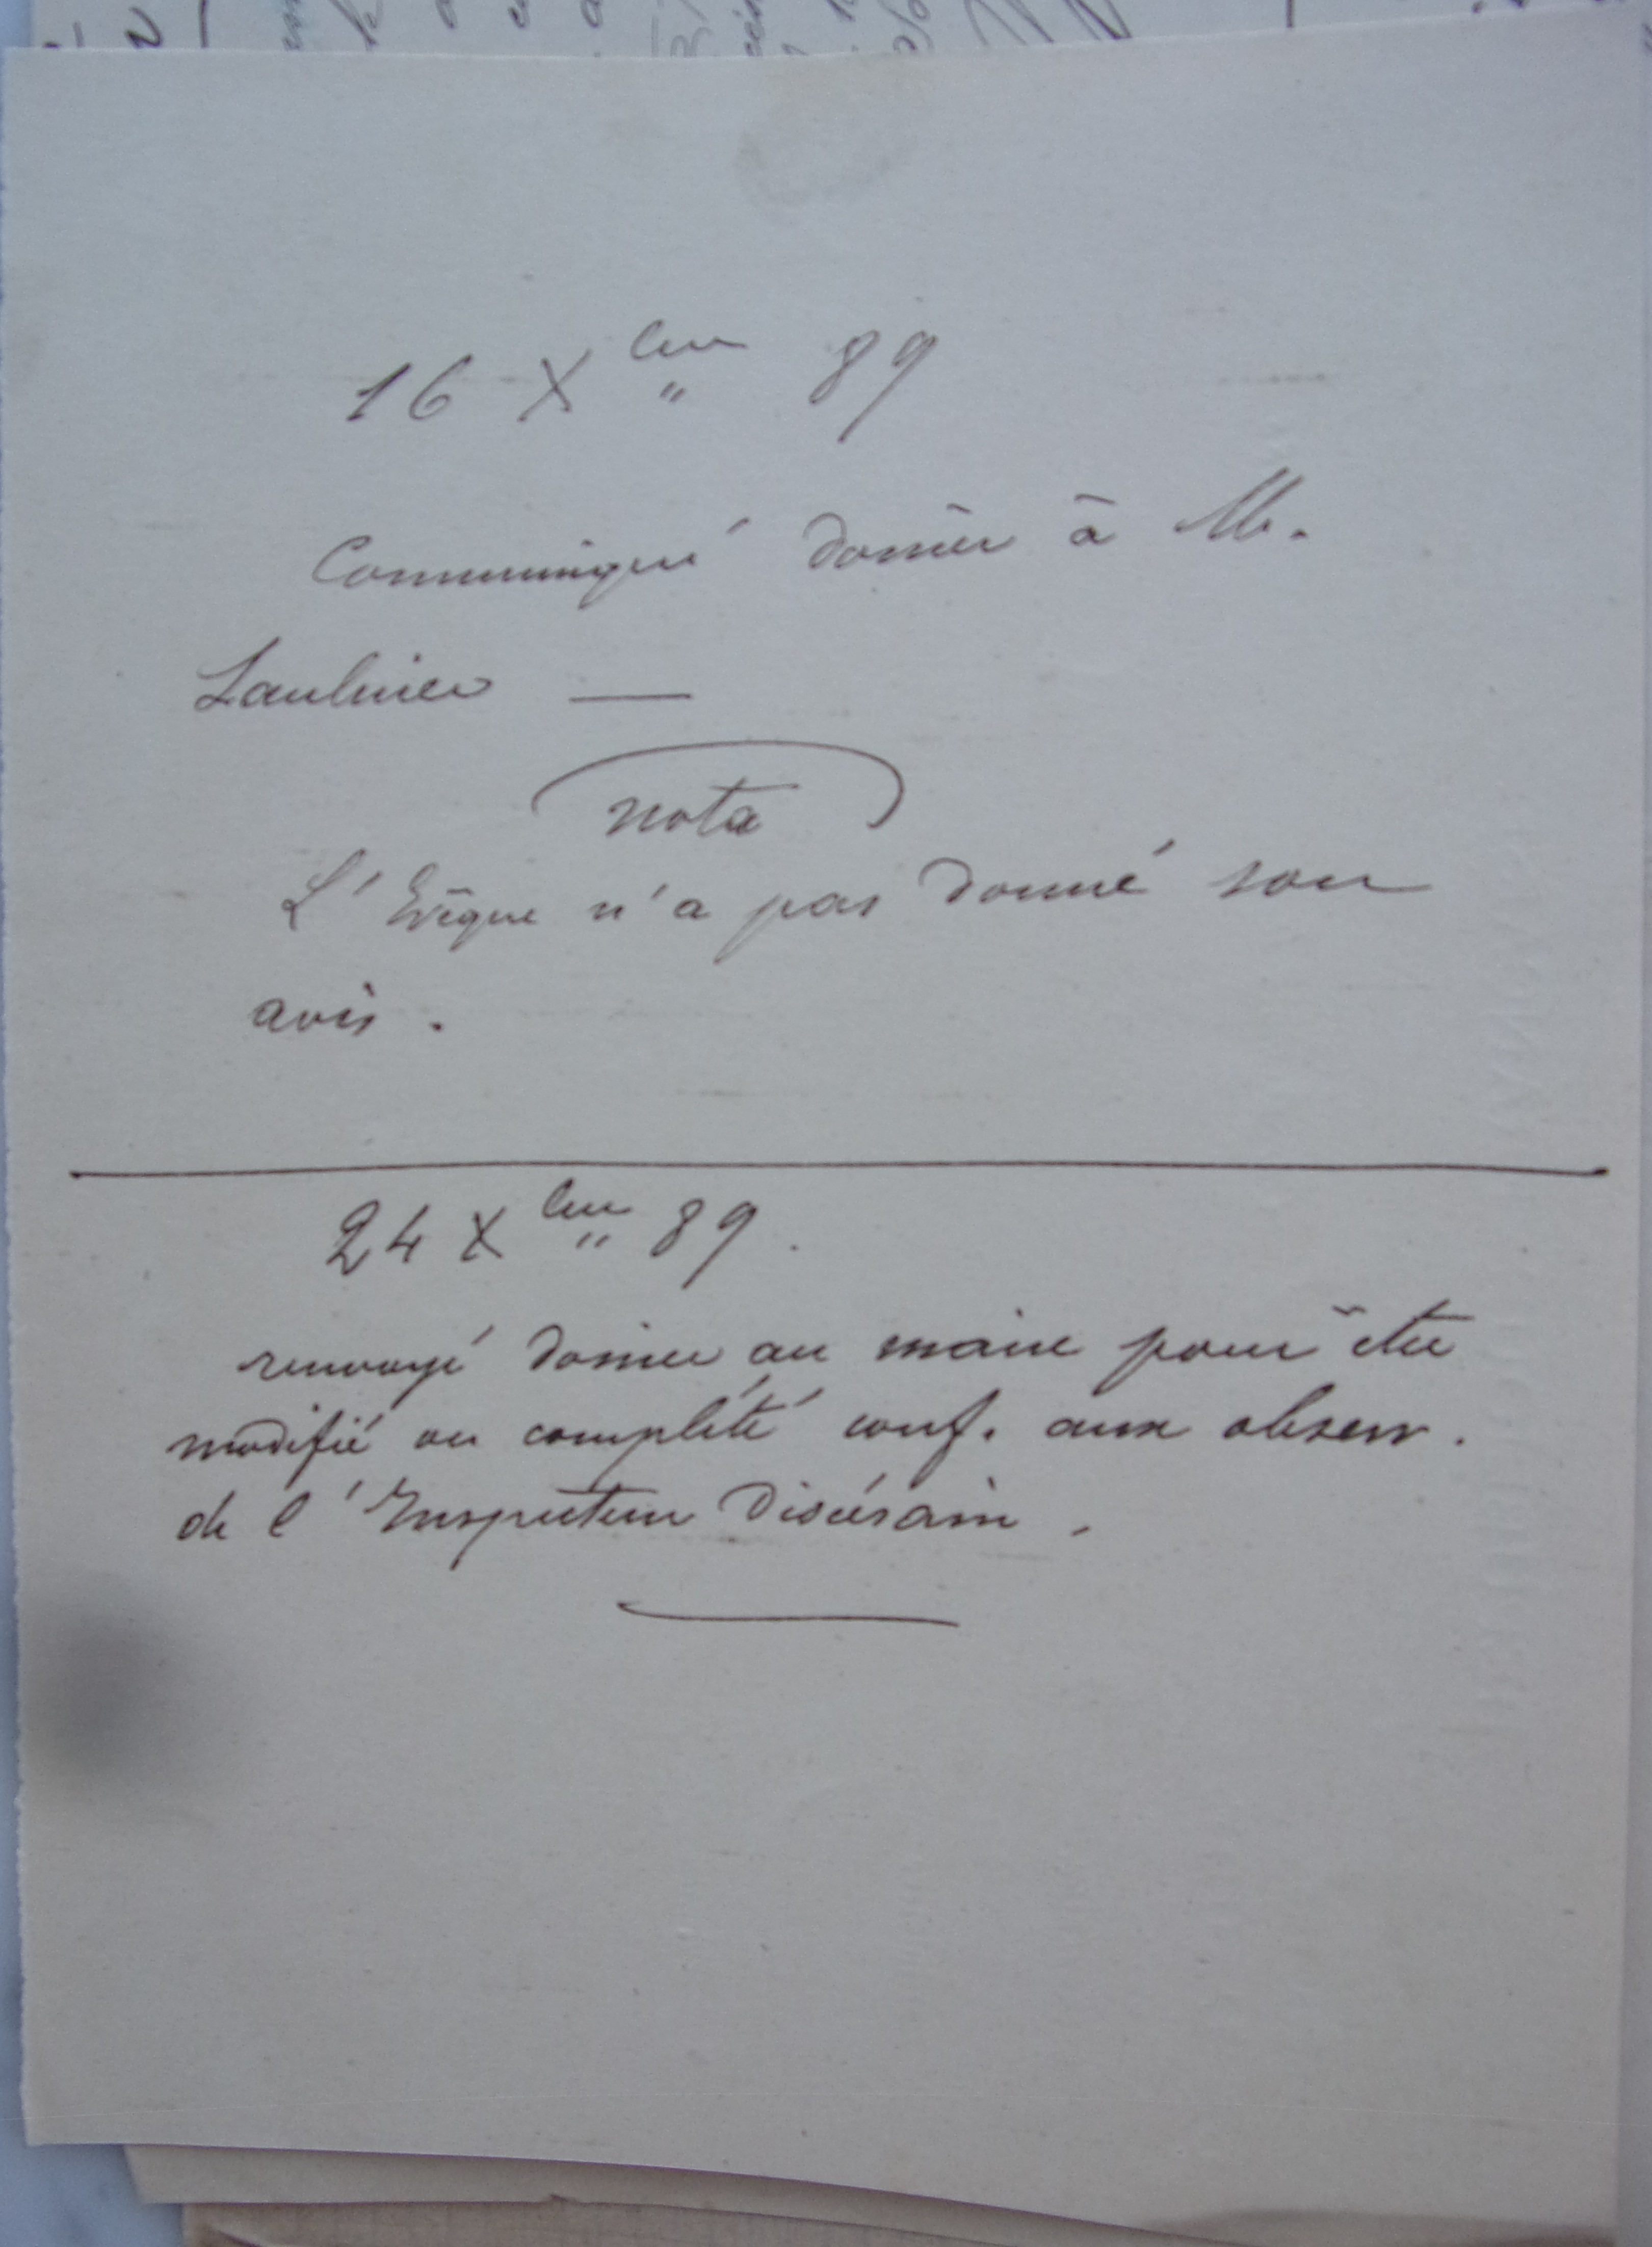 16 Xbre 89
Communiqué dossier à M.
Saulnier —
nota
L'Evêque n'a pas donné son
avis.
24 Xbre 89.
renvoyé dossier au maire pour être
modifié ou complété conf. aux observ.
de l'Inspecteur Diocésain.